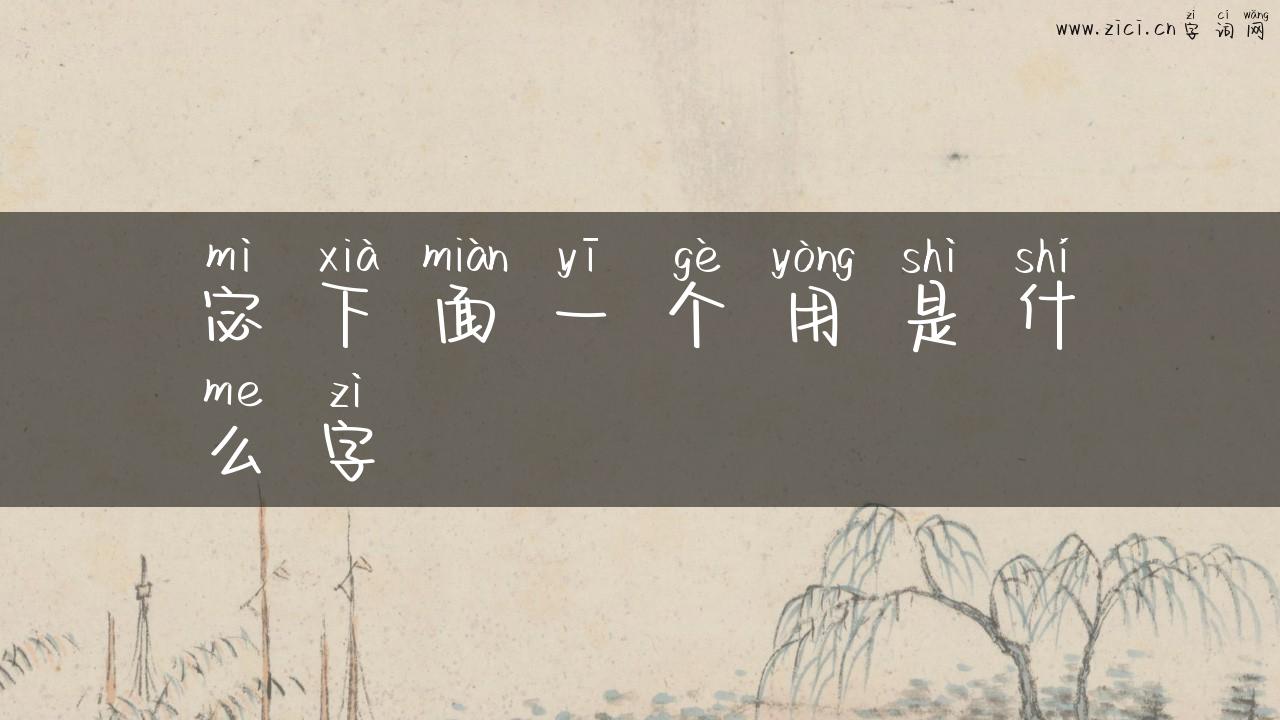 zì cí wǎng
www.zici.cn 字词网
mì xià miàn yī gè yòng shì shí
宓下面一个用是什
me zì
么字